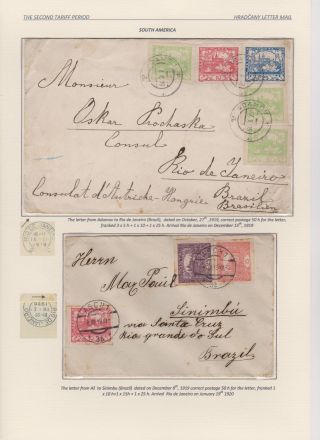 THE SECOND TARIFF PERIOD
HRADČANY LETTER MAIL
SOUTH AMERICA
Monsieur
Oskar Prochaska
Consul
Rio de Janeiro
Consulat d'Autriche-Hongrie
Brazil
Brasilien
The letter from Adamov to Rio de Janeiro (Brazil), dated on October, 27th, 1919, correct postage 50 h for the letter,
franked 3 x 5 h + 1 x 10 + 1 x 25 h. Arrival Rio de Janeiro on December 15th, 1919
Herrn
Max Pauil
Sinimbú
via Santa Cruz
Rio grande do Sul
Brazil
The letter from Aš to Sinimbu (Brazil) dated on December 8th, 1919 correct postage 50 h for the letter, franked 1
x 10 h+1 x 15h + 1 x 25 h. Arrival Rio de Janeiro on January 29th 1920